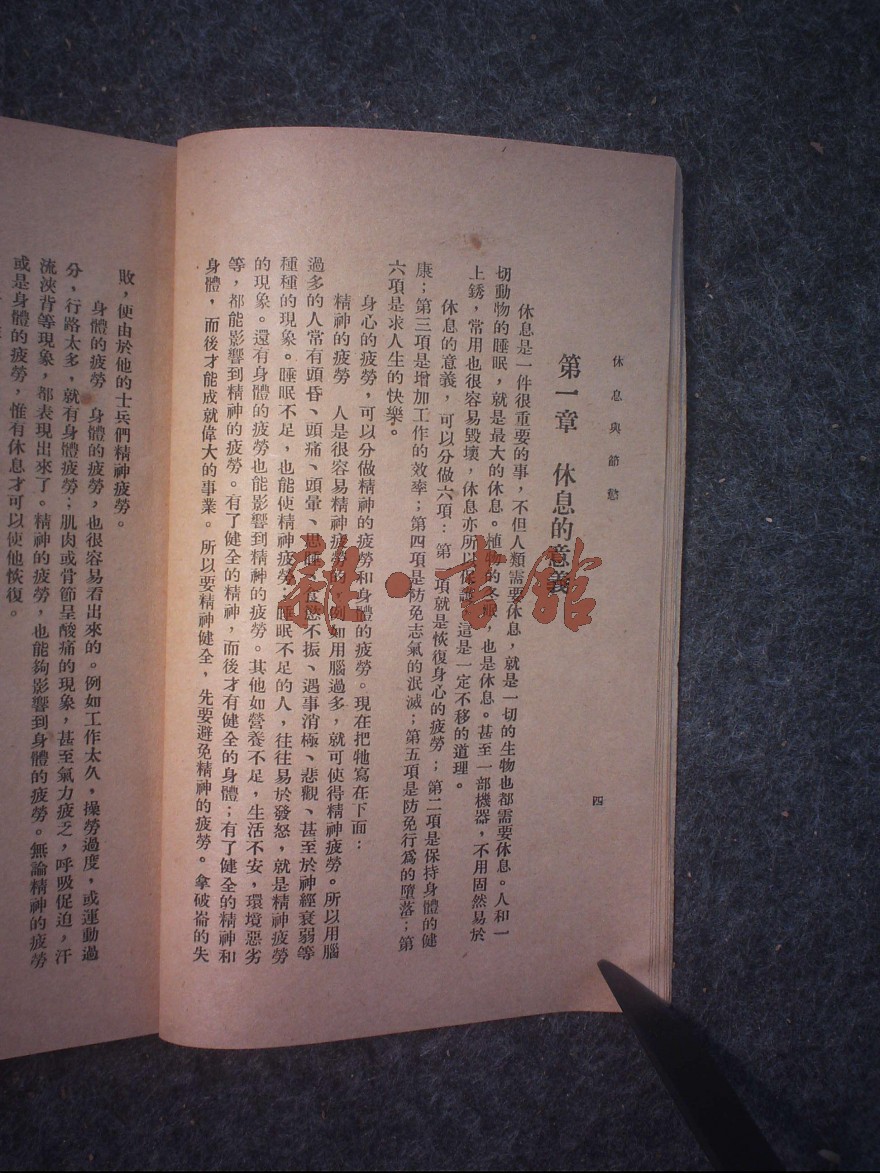 休息與節慾
四
第一章 休息的意義
休息是一件很重要的事，不但人類需要休息，就是一切的生物也都需要休息。人和一
切動物的睡眠，就是最大的休息。植物的冬眠，也是休息。甚至一部機器，不用固然易於
上銹，常用也很容易毀壞，休息亦所以保護，這是一定不移的道理。
休息的意義，可以分做六項：第一項就是恢復身心的疲勞；第二項是保持身體的健
康；第三項是增加工作的效率；第四項是防免志氣的泯滅；第五項是防免行爲的墮落；第
六項是求人生的快樂。
身心的疲勞，可以分做精神的疲勞和身體的疲勞。現在把牠寫在下面：
精神的疲勞 人是很容易精神疲勞的，例如用腦過多，就可使得精神疲勞。所以用腦
過多的人常有頭昏、頭痛、頭暈、思睡、食慾不振、遇事消極、悲觀、甚至於神經衰弱等
種種的現象。睡眠不足，也能使精神疲勞；睡眠不足的人，往往易於發怒，就是精神疲勞
的現象。還有身體的疲勞也能影響到精神的疲勞。其他如營養不足，生活不安，環境惡劣
等，都能影響到精神的疲勞。有了健全的精神，而後才有健全的身體；有了健全的精神和
身體，而後才能成就偉大的事業。所以要精神健全，先要避免精神的疲勞。拿破崙的失
敗，便由於他的士兵們精神疲勞。
身體的疲勞 身體的疲勞，也很容易看出來的。例如工作太久，操勞過度，或運動過
分，行路太多，就有身體疲勞：肌肉或骨節呈酸痛的現象，甚至氣力疲乏，呼吸促迫，汗
流浹背等現象，都表現出來了。精神的疲勞，也能夠影響到身體的疲勞。無論精神的疲勞
或是身體的疲勞，惟有休息才可以使他恢復。
雜·書館